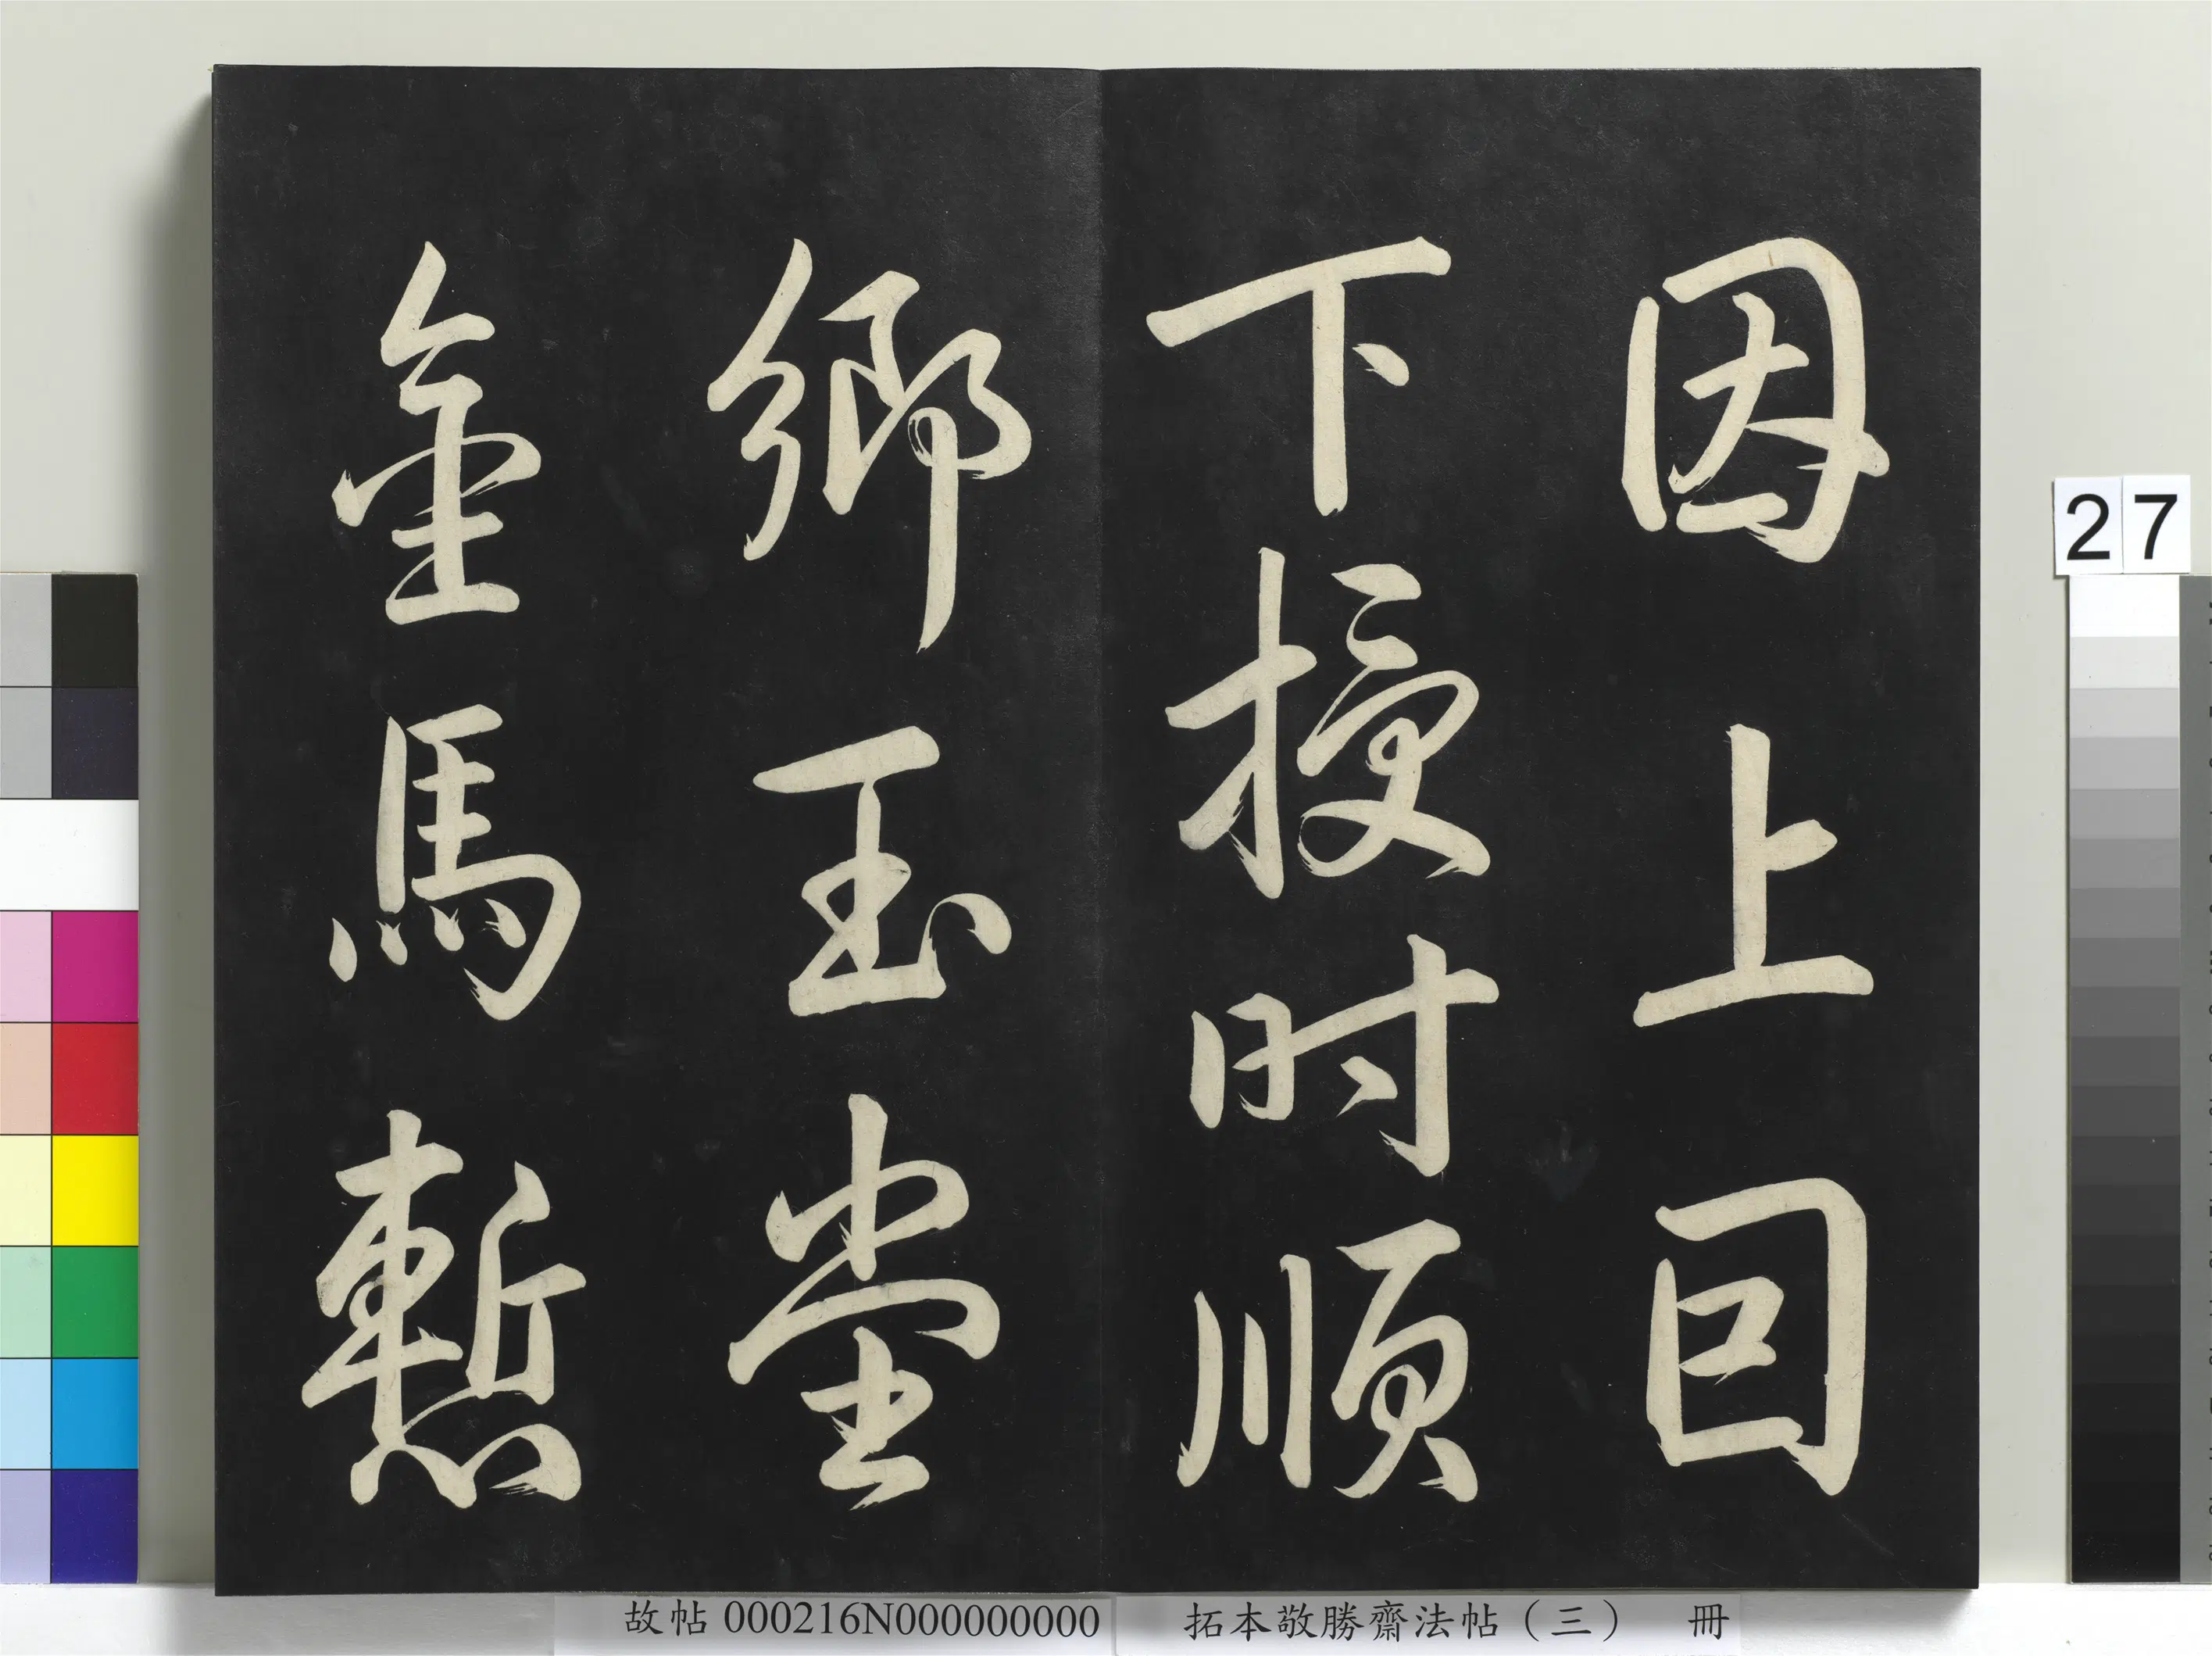 因上回
下授时順
鄉玉堂
金馬慙
27
故帖000216N000000000
拓本敬勝齋法帖（三） 冊